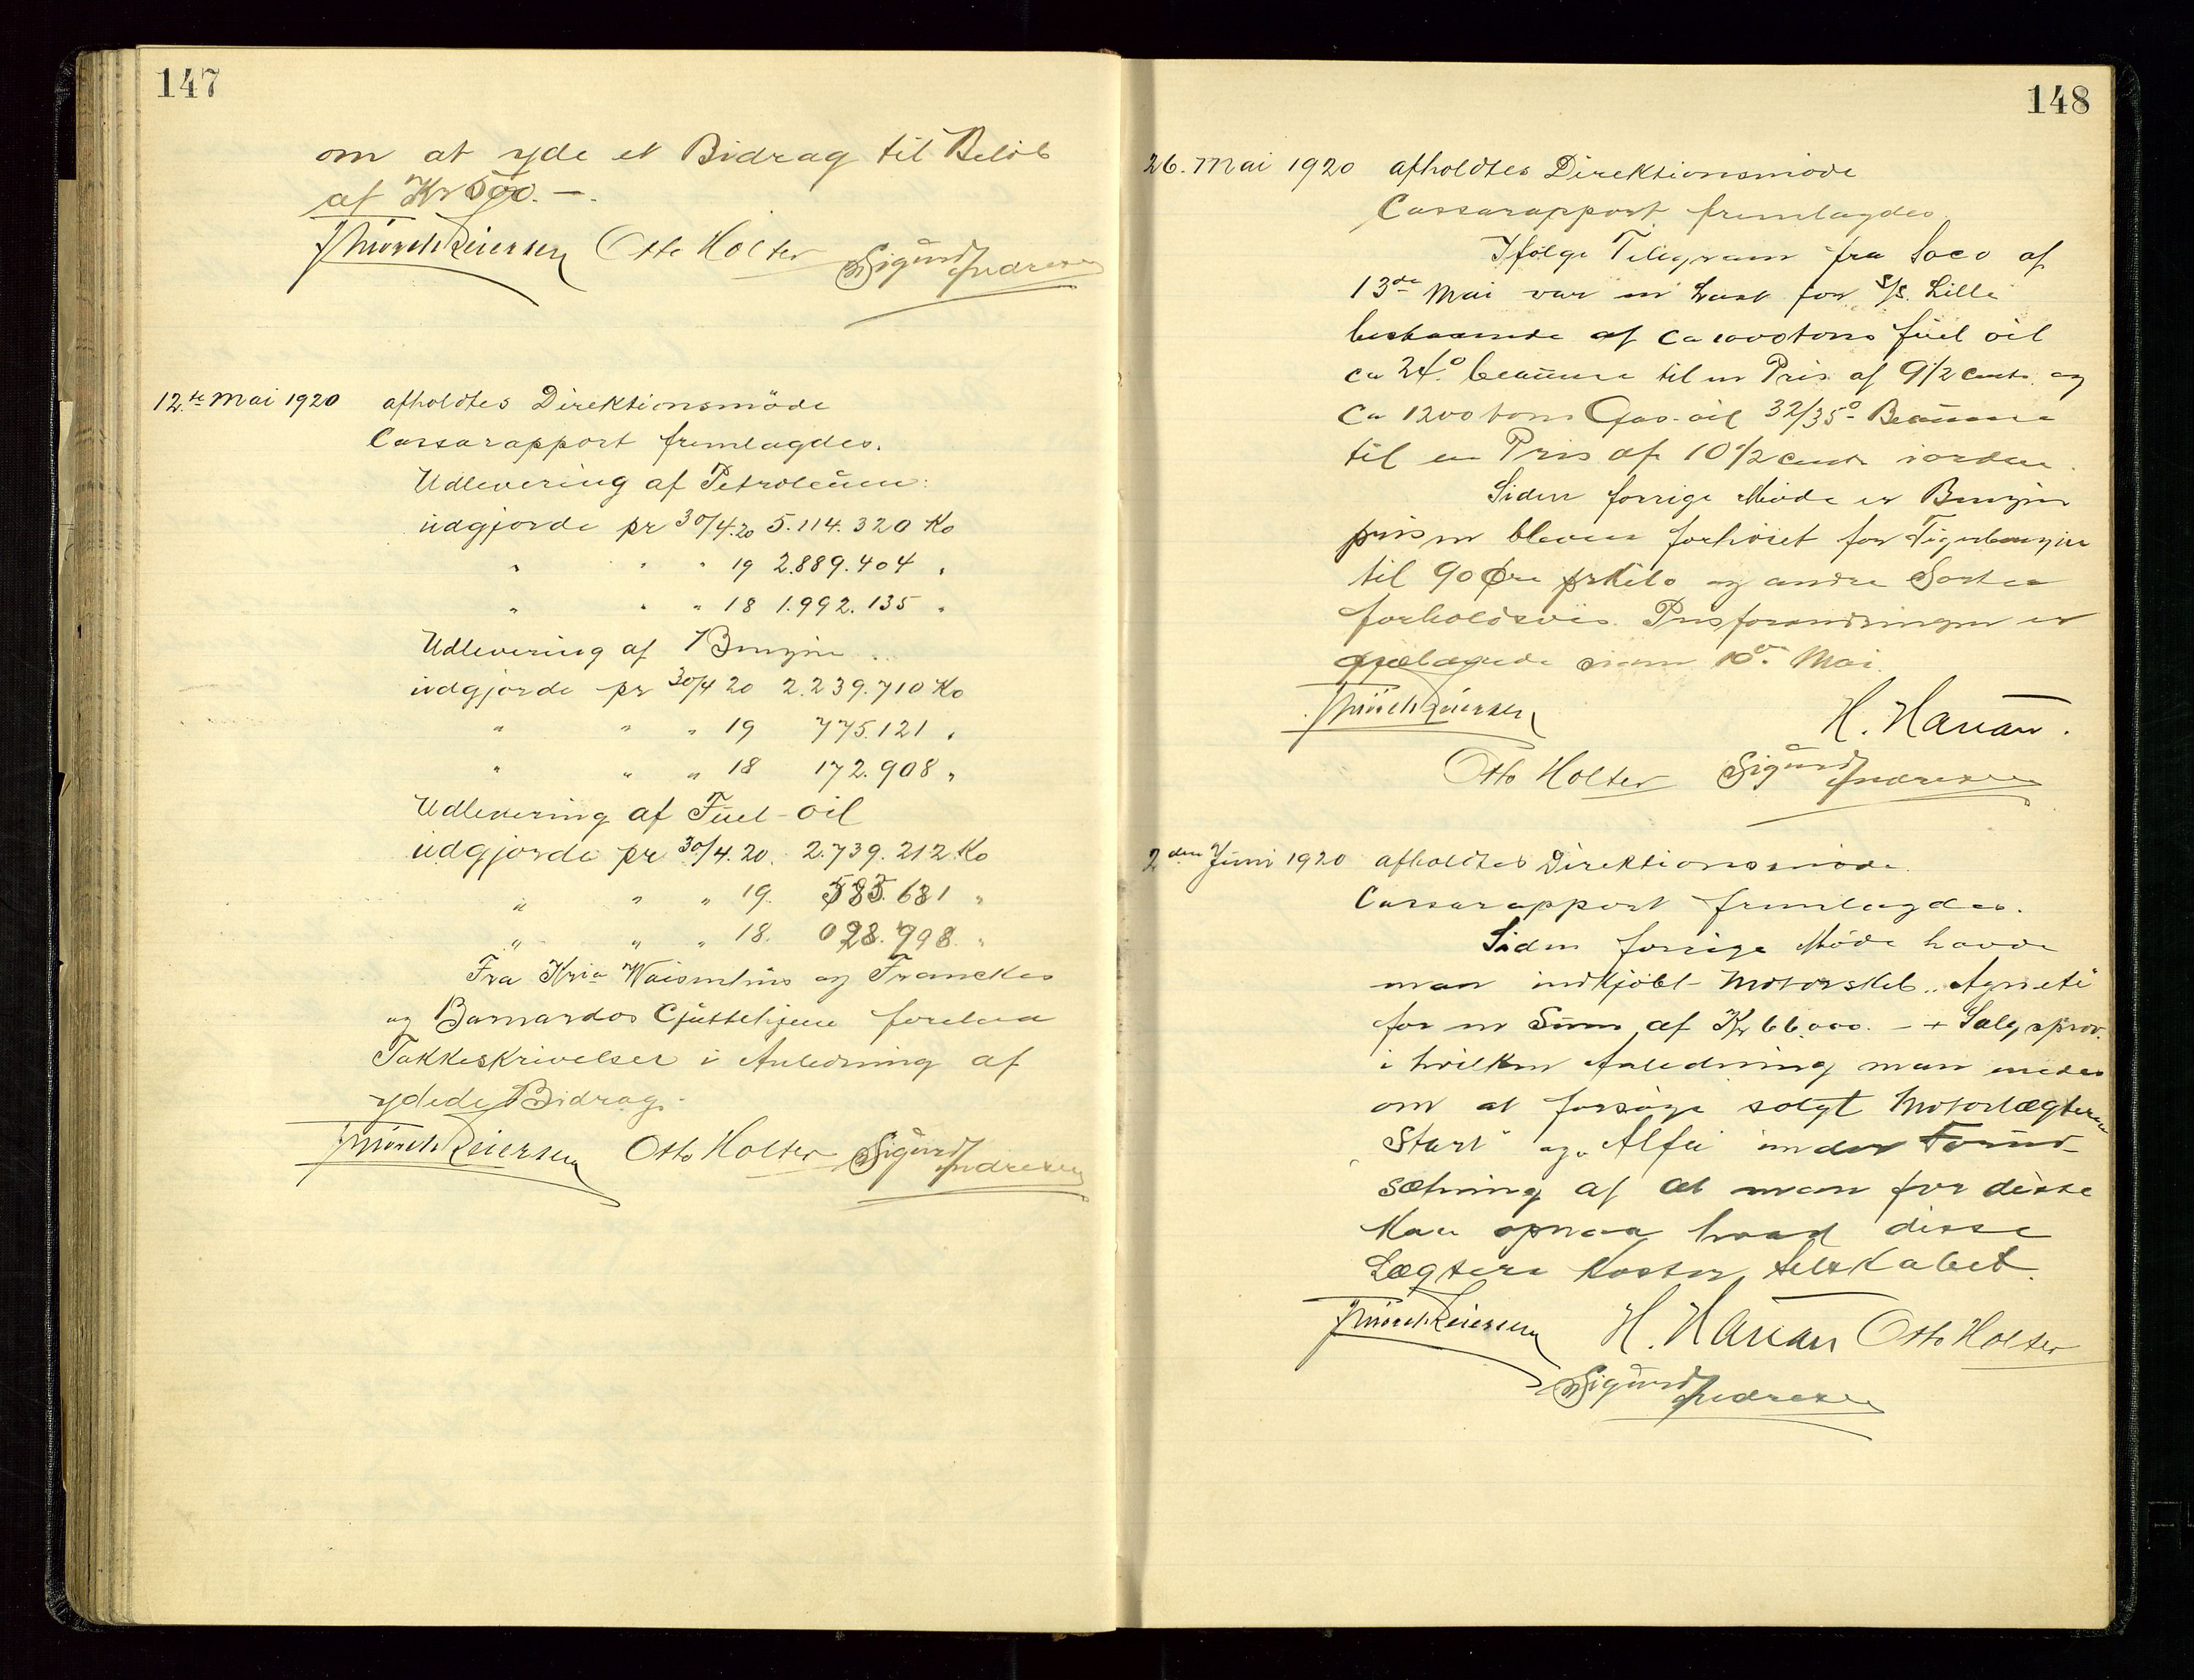 147
om at yde et Bidrag til Beløb
af Kr 500.—.
Mürch Reiersen Otto Holter Sigurd Andresen
12.te Mai 1920 afholdtes Direktionsmöde
Cassarapport fremlagdes.
Udlevering af Petroleum:
udgjorde pr 30/4.20 5.114.320 Ko
" " " 19 2.889.404 "
" " " 18 1.992.135 "
Udlevering af Benzin
udgjorde pr 30/4 20 2.239.710 Ko
" " " 19 775.121 "
" " " 18 172.908 "
Udlevering af Fuel-oil
udgjorde pr 30/4.20. 2.739.212 Ko
" " " 19. 585.681 "
" " " 18. 028.798. "
Fra Kria Waisenhus og Franckes
og Barnardos Gjuttehjem forelaa
Takkeskrivelser i Anledning af
ydede Bidrag.
Mürch Reiersen Otto Holter Sigurd Andresen
148
26. Mai 1920 afholdtes Direktionsmöde
Cassarapport fremlagdes
Ifølge Telegram fra Soco af
13de Mai var en Last for S/S. Lilli
bestaaende af ca 1000 tons fuel oil
ca 24.° beaume til en Pris af 9 1/2 cents og
ca 1200 tons Gas-oil 32/35° Beaume
til en Pris af 10 1/2 cents i orden.
Siden forrige Möde er Benzin
prisen bleven forhöiet for Tigerbenzin
til 90 Øre pr Kilo og andre Sorter
forholdsvis. Prisforandringen er
gjældende siden 10de Mai.
Mürch Reiersen
H. Harian.
Otto Holter Sigurd Andresen
2den Juni 1920 afholdtes Direktionsmöde.
Cassarapport fremlagdes.
Siden forrige Möde havde
man indkjøbt Motorskib „Agnete"
for en Sum af Kr 66.000.— + Salgsprov.
i hvilken Anledning man enedes
om at forsøge solgt Motorlægterne
„Start" og „Alfa" under Forud-
sætning af at man for disse
kan opnaa hvad disse
Lægtere koster selskabet.
Mürch Reiersen H. Harian Otto Holter
Sigurd Andresen